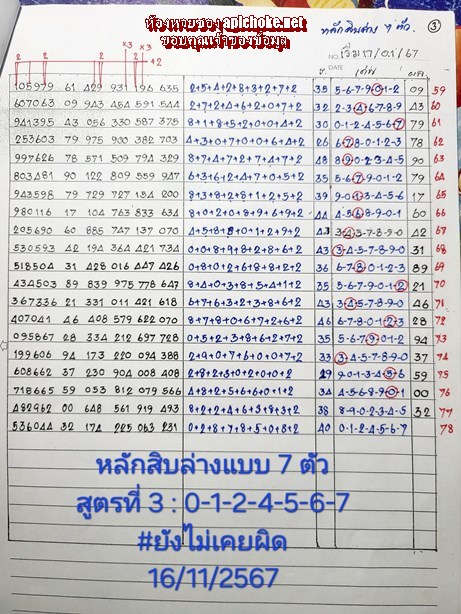 ห้องหวยของ aplchoke.net
ขอบคุณเจ้าของข้อมูล
หลักสิบล่าง 7 ตัว 3
NO. เริ่ม 17/01/67
DATE
2 2 x3 x3 2 +2
105979 61 429 931 196 635 2+5+4+2+8+3+2+7+2 35 5-6-7-9-0-1-2 09 59
607063 09 943 464 591 544 32 2-3-4-6-7-8-9 43 60
941395 43 056 330 587 375 8+1+8+5+2+0+0+4+2 30 0-1-2-4-5-6-7 79 61
253603 79 975 900 382 703 26 6-7-8-0-1-2-3 78 62
997626 78 571 509 794 329 48 8-9-0-2-3-4-5 90 63
803481 90 122 809 559 947 35 5-6-7-9-0-1-2 79 64
943598 79 729 727 134 200 39 9-0-1-3-4-5-6 17 65
980116 17 104 763 833 634 44 4-5-6-8-9-0-1 60 66
205690 60 885 747 137 070 43 3-4-5-7-8-9-0 42 67
530593 42 194 364 421 734 43 3-4-5-7-8-9-0 31 68
518504 31 428 016 447 426 36 6-7-8-0-1-2-3 89 69
434503 89 839 975 778 647 35 5-6-7-9-0-1-2 21 70
367336 21 331 011 421 618 6+7+6+3+2+3+8+6+2 43 3-4-5-7-8-9-0 46 71
407041 46 408 579 622 070 46 6-7-8-0-1-2-3 28 72
095867 28 334 212 697 728 0+5+2+3+8+6+2+7+2 35 5-6-7-9-0-1-2 94 73
199606 94 173 220 094 388 2+9+0+7+6+0+0+7+2 33 3-4-5-7-8-9-0 37 74
608662 37 230 904 008 408 2+8+2+3+0+2+0+0+2 19 9-0-1-3-4-5-6 59 75
718665 59 053 812 079 566 34 4-5-6-8-9-0-1 00 76
482962 00 648 561 919 493 38 8-9-0-2-3-4-5 32 77
536044 32 174 225 063 231 40 0-1-2-4-5-6-7 78
หลักสิบล่างแบบ 7 ตัว
สูตรที่ 3 : 0-1-2-4-5-6-7
#ยังไม่เคยผิด
16/11/2567